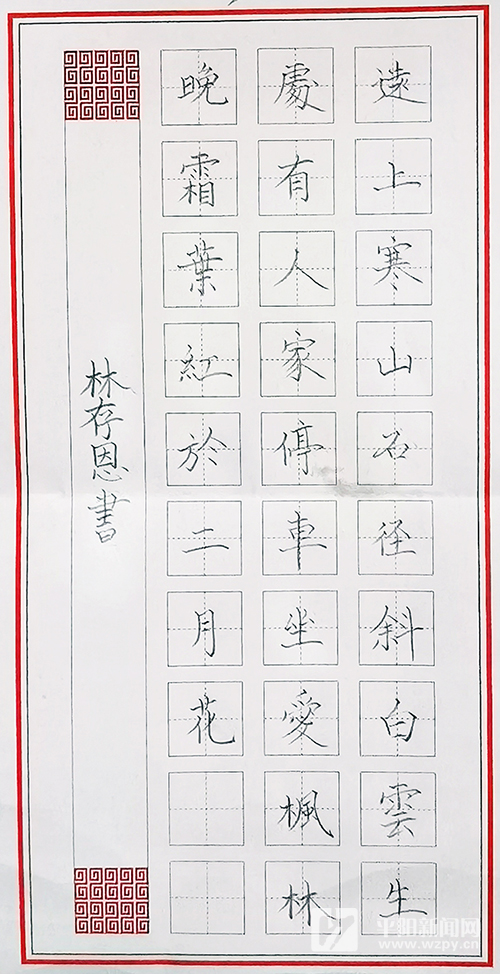 遠上寒山石径斜白雲生
處有人家停車坐愛楓林
晚霜葉紅於二月花
林存恩書
平阳新闻网
www.wzpy.cn